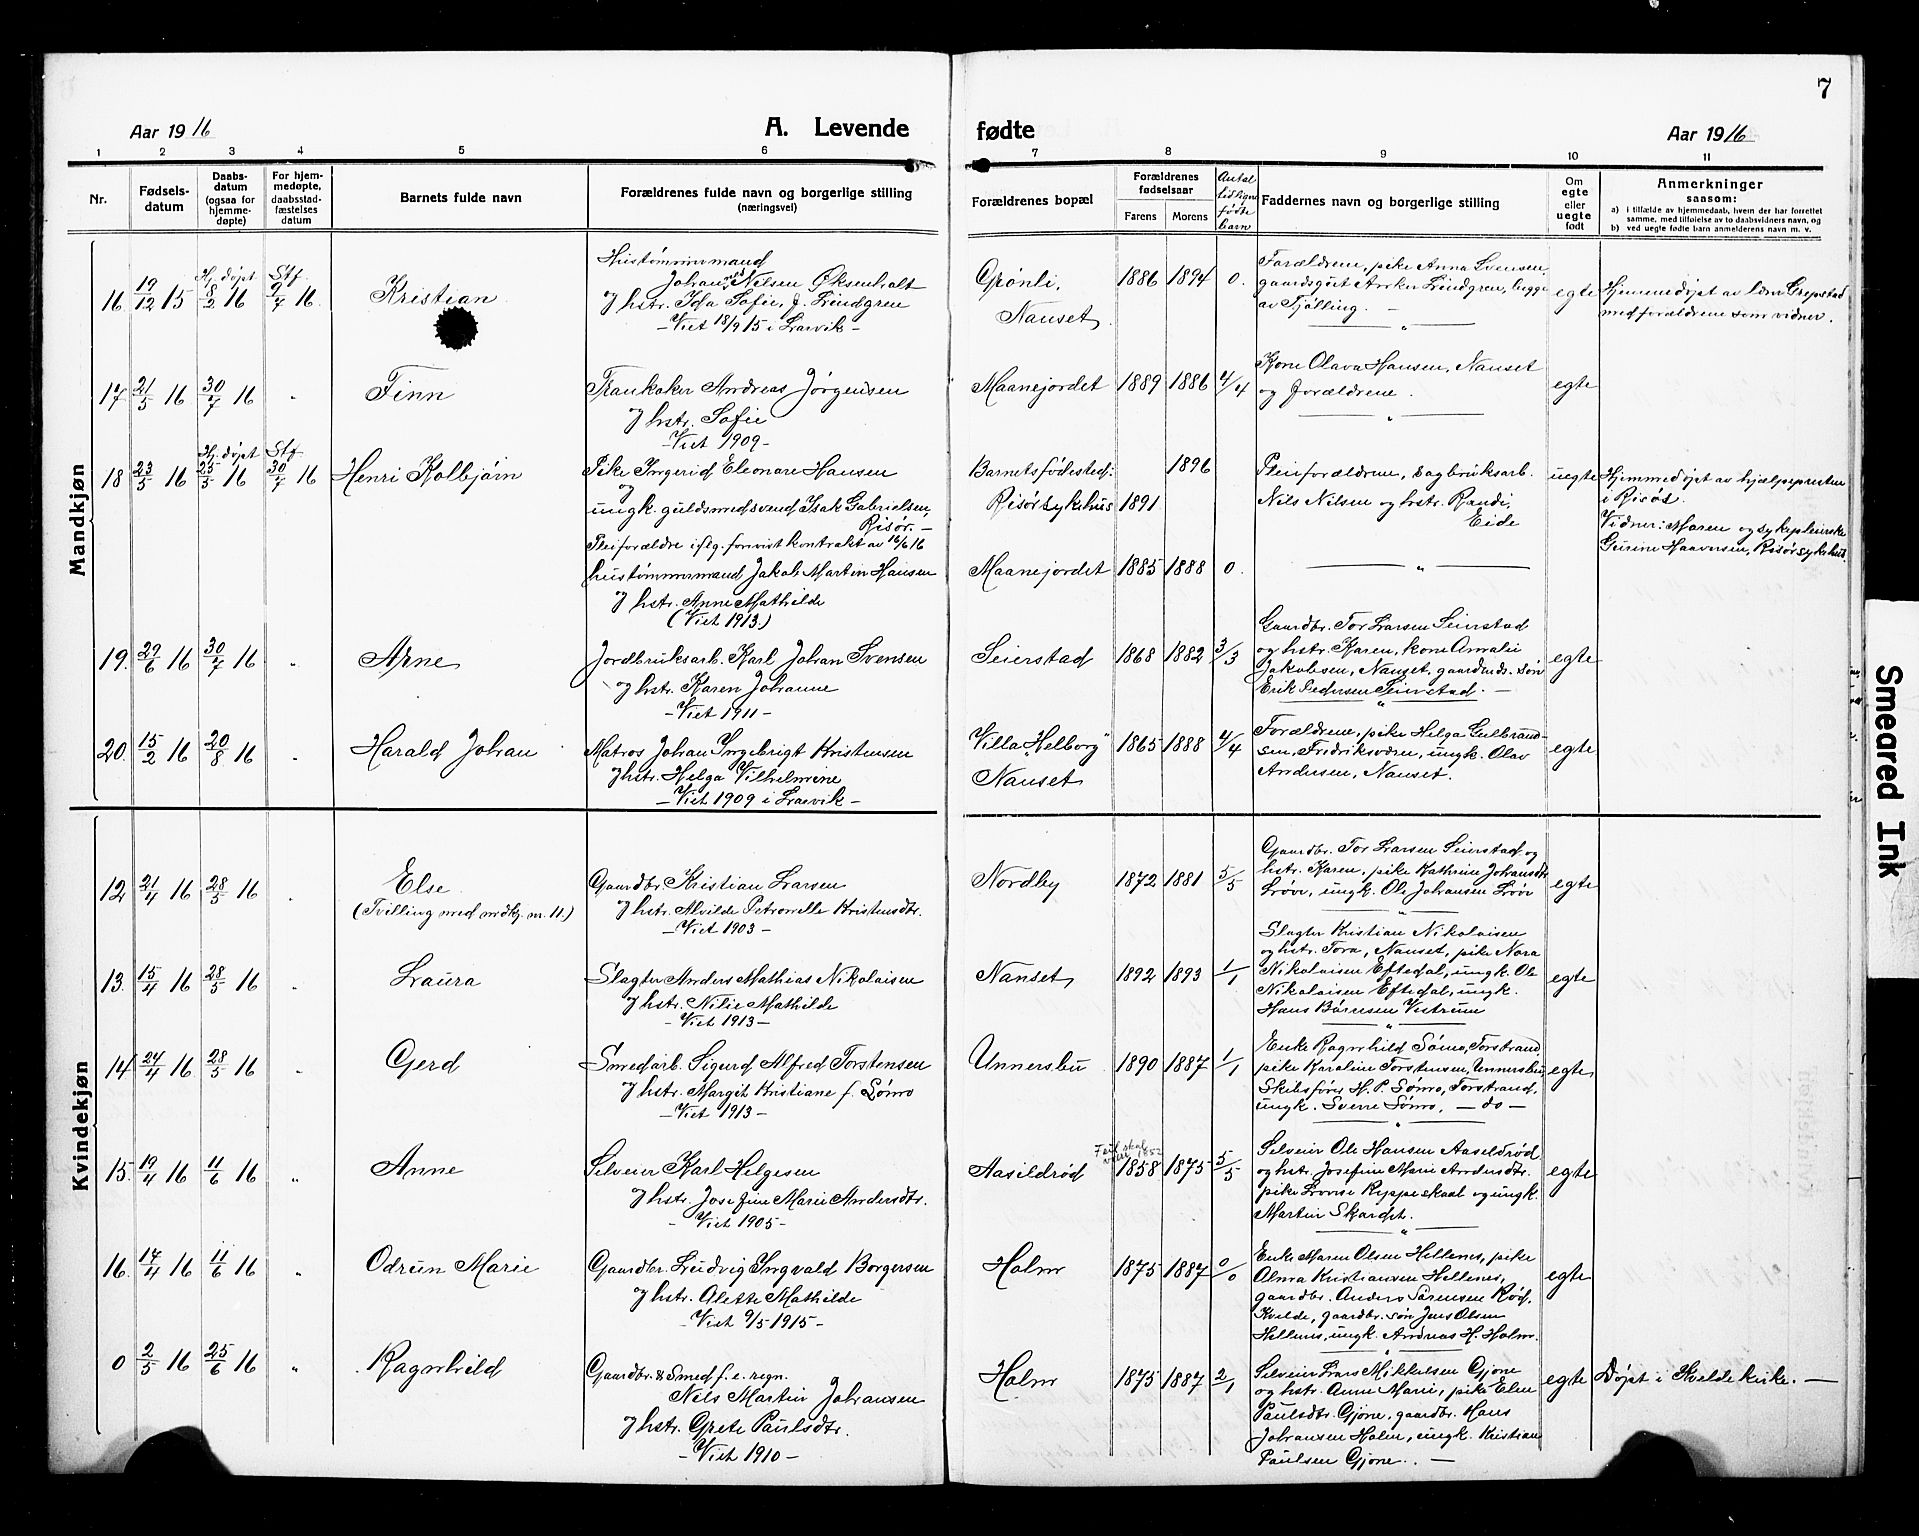 7
Aar 1916
A. Levende
fødte
Aar 1916
1 2 3 4 5 6 7 8 9 10 11
Nr.
Fødsels-
datum
Daabs-
datum
(ogsaa for
hjemme-
døpte)
For hjem-
medøpte,
daabsstad-
fæstelses
datum
Barnets fulde navn
Forældrenes fulde navn og borgerlige stilling
(næringsvei)
Forældrenes bopæl
Forældrenes
fødselsaar
Farens Morens
Antal
tidligere
fødte
barn
Faddernes navn og borgerlige stilling
Om
egte
eller
uegte
født
Anmerkninger
saasom:
a) i tilfælde av hjemmedaab, hvem der har forrettet
samme, med tilføielse av to daabsvidners navn, og
b) ved uegte fødte barn anmelderens navn m. v.
Mandkjøn
16 19/12 15 Hj. døpt 8/2 16 Stf. 9/7 16 Kristian
Hustømmermand
Johannes Nilsen Øksenholt
og hstr. Ida Sofie, f. Lindgren
- Viet 18/9 15 i Larvik -
Grønli,
Nanset.
1886 1894 0.
Forældrene, pike Anna Svensen,
gaardsgut Anker Lindgren, begge
av Tjølling. -
egte
Hjemmedøpt av lær. Grepstad
med forældrene som vidner.
17 21/5 16 30/7 16 " Finn
Trankoker Andreas Jørgensen
og hstr. Sofie
- Viet 1909 -
Maanejordet 1889 1886 4/4
Kone Olava Hansen, Nanset
og forældrene.
egte
18 23/5 16 Hj. døpt 25/5 16 Stf. 30/7 16 Henri Kolbjørn
Pike Ingerid Eleonore Hansen
og
ungk. guldsmedsvend Isak Gabrielsen,
Risør. -
Pleiforældre iflg. forevist kontrakt av 16/6 16
hustømmermand Jakob Martin Hansen
og hstr. Anne Mathilde
(Viet 1913.)
Barnets fødested:
Risør sykehus
1896
1891
Maanejordet 1885 1888 0.
Pleiforældrene, sagbruksarb.
Nils Nilsen og hstr. Randi,
Eide
uegte
Hjemmedøpt av hjælpepresten
i Risør.
Vidner: Moren og sykepleierske
Gurine Haavorsen, Risør sykehus.
19. 29/6 16 30/7 16 " Arne
Jordbruksarb. Karl Johan Svensen
og hstr. Karen Johanne
- Viet 1911 -
Seierstad 1868 1882 3/3
Gaardbr. Tor Larsen Seierstad
og hstr. Karen, kone Amalie
Jakobsen, Nanset, gaardbrds. søn
Erik Pedersen Seierstad. -
egte
20. 15/2 16 20/8 16 " Harald Johan
Matros Johan Ingebrigt Kristensen
og hstr. Helga Vilhelmine
- Viet 1909 i Larvik -
Villa "Helborg"
Nanset
1865 1888 4/4
Forældrene, pike Helga Gulbrand-
sen, Fredriksværn, ungk. Olav
Andersen, Nanset.
egte
Kvindekjøn
12 21/4 16 28/5 16 " Else
(Tvilling med mdkj. nr. 11.)
Gaardbr. Kristian Larsen
og hstr. Alvilde Petronelle Kristensdtr.
- Viet 1903 -
Nordby 1872 1881 5/5
Gaardbr. Tor Larsen Seierstad og
hstr. Karen, pike Kathrine Johansdtr.
Løve, ungk. Ole Johansen Løve
egte
13. 15/4 16 28/5 16 " Laura
Slagter Anders Mathias Nikolaisen
og hstr. Nilie Mathilde
- Viet 1913 -
Nanset 1892 1893 1/1
Slagter Kristian Nikolaisen
og hstr. Tora, Nanset, pike Nora
Nikolaisen Eftedal, ungk. Ole
Nikolaisen Eftedal, ungk.
Hans Børresen Vestrum
egte
14 24/4 16 28/5 16 " Gerd
Smedarb. Sigurd Alfred Torstensen
og hstr. Margit Kristiane f. Sømo
- Viet 1913 -
Unnersbu 1890 1887 1/1
Enke Ragnhild Sømo, Torstrand,
pike Karoline Torstensen, Unnersbu,
Skibsfører H. P. Sømo, Torstrand,
ungk. Sverre Sømo. - do -
egte
15. 19/4 16 11/6 16 " Anne
Selveier Karl Helgesen
og hstr. Josefine Marie Andersdtr.
- Viet 1905 -
Aasildrød
Feil skal
være 1852
1858 1875 5/5
Selveier Ole Hansen Aasildrød
og hstr. Josefine Marie Andersdtr.
pike Lovise Ryppeskaal og ungk.
Martin Skardet.
egte
16. 17/4 16 11/6 16 " Odrun Marie
Gaardbr. Ludvig Ingvald Borgersen
og hstr. Alette Mathilde
- Viet 9/5 1915 -
Holm 1875 1887 0/0
Enke Maren Olsen Hellenes, pike
Alma Kristiansen Hellenes,
gaardbr. Anders Sørensen Rød,
Kvelde, gaardbr. søn Jens Olsen
Hellenes, ungk. Andreas H. Holm.
egte
0 2/5 16 25/6 16 " Ragnhild
Gaardbr. & Smed f. e. regn.
Nils Martin Johansen
og hstr. Grete Paulsdtr.
- Viet 1910 -
Holm 1875 1887 2/1
Selveier Lars Mikkelsen Gjone
og hstr. Anne Marie, pike Elen
Paulsdtr. Gjone, gaardbr. Hans
Johansen Holm, ungk. Kristian
Paulsen Gjone. -
egte
Døpt i Kvelde kirke. -
Smeared Ink